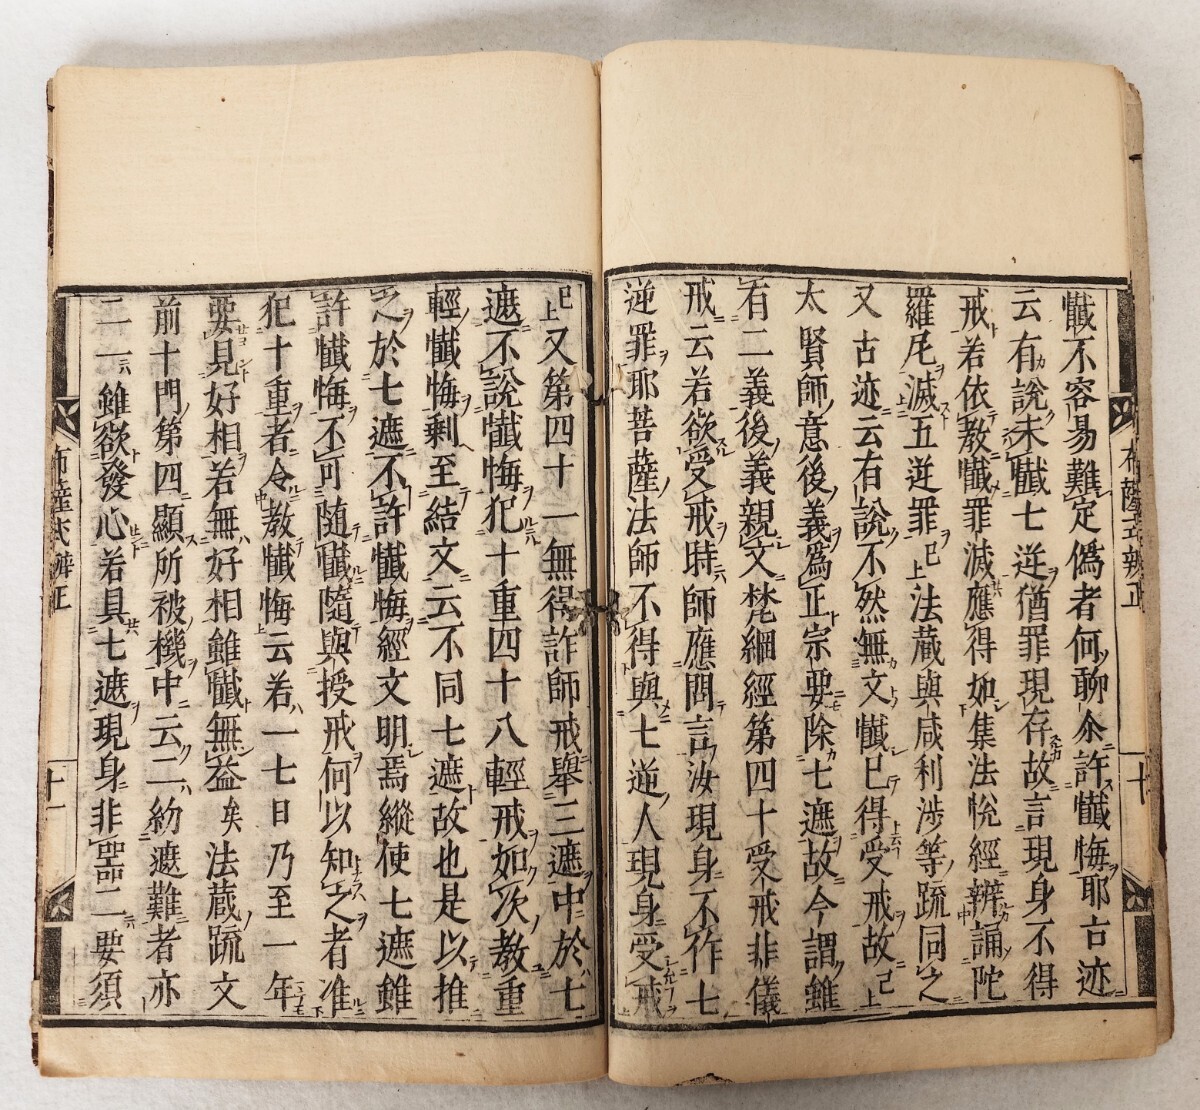 懺不容易難定偽者何聊尒許懺悔耶古迹
云有說未懺七逆猶罪現存故言現身不得
戒若依教懺罪滅應得如集法悅經辨誦陀
羅尼滅五逆罪已上法藏與咸利涉等疏同之
又古迹云有說不然無文懺已得受戒故已上
太賢師意後義為正宗要除七遮故今謂雖
有二義後義親文梵網經第四十受戒非儀
戒云若欲受戒時師應問言汝現身不作七
逆罪耶菩薩法師不得與七逆人現身受戒
已上又第四十一無得詐師戒舉三遮中於七
遮不說懺悔犯十重四十八輕戒如次教重
輕懺悔剩至結文云不同七遮故也是以推
之於七遮不許懺悔經文明焉縱使七遮雖
許懺悔不可随懺隨與授戒何以知之者准
犯十重者令教懺悔云若一七日乃至一年
要見好相若無好相雖懺無益矣法蔵疏文
前十門第四顯所被機中云二約遮難者亦
二一雖欲發心若具七遮現身非噐二要須
布薩式辨正
十
布薩式辨正
十一